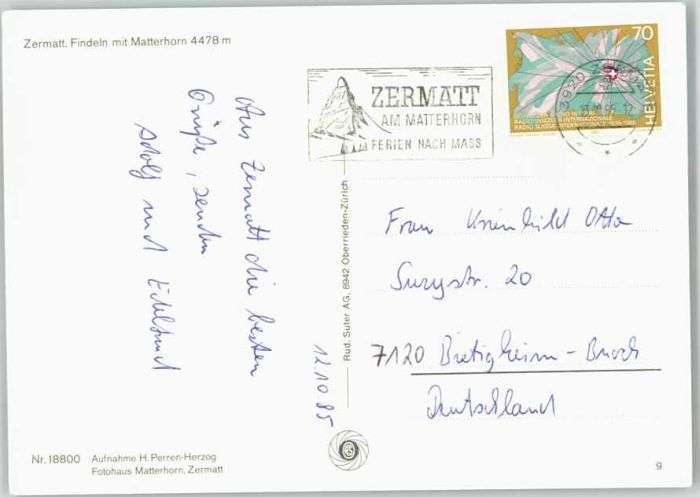 Zermatt. Findeln mit Matterhorn 4478 m
ZERMATT
AM MATTERHORN
FERIEN NACH MASS
70
HELVETIA
Aus Zermatt die besten
Grüße, senden
Adolf und Edeltraud
12.10.85
Rud. Suter AG, 8942 Oberrieden-Zürich
Frau Kriemhild Otto
Surystr. 20
7120 Bietigheim-Buoch
Deutschland
Nr. 18800
Aufnahme H. Perren-Herzog
Fotohaus Matterhorn, Zermatt
9